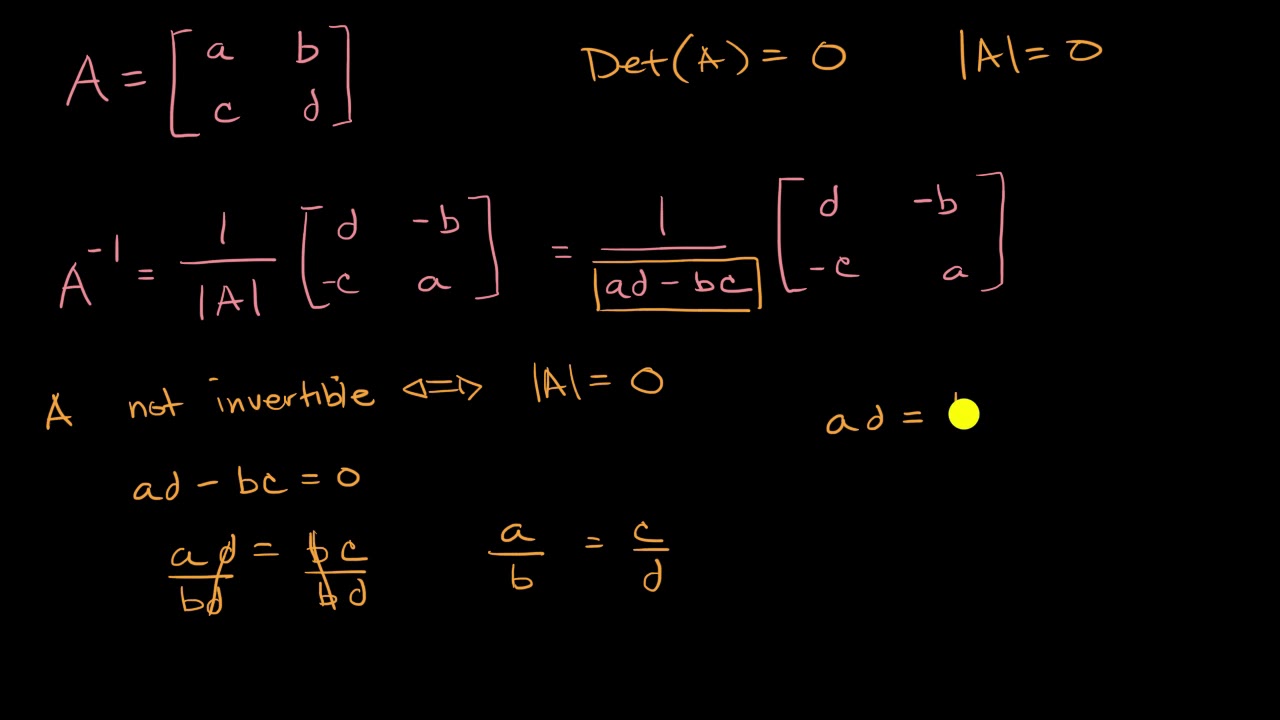 A = [a b c d] Det(A) = 0 |A| = 0
A^-1 = 1/|A| [d -b -c a] = 1/(ad - bc) [d -b -c a]
A not invertible <=> |A| = 0
ad =
ad - bc = 0
ad/bd = bc/bd a/b = c/d